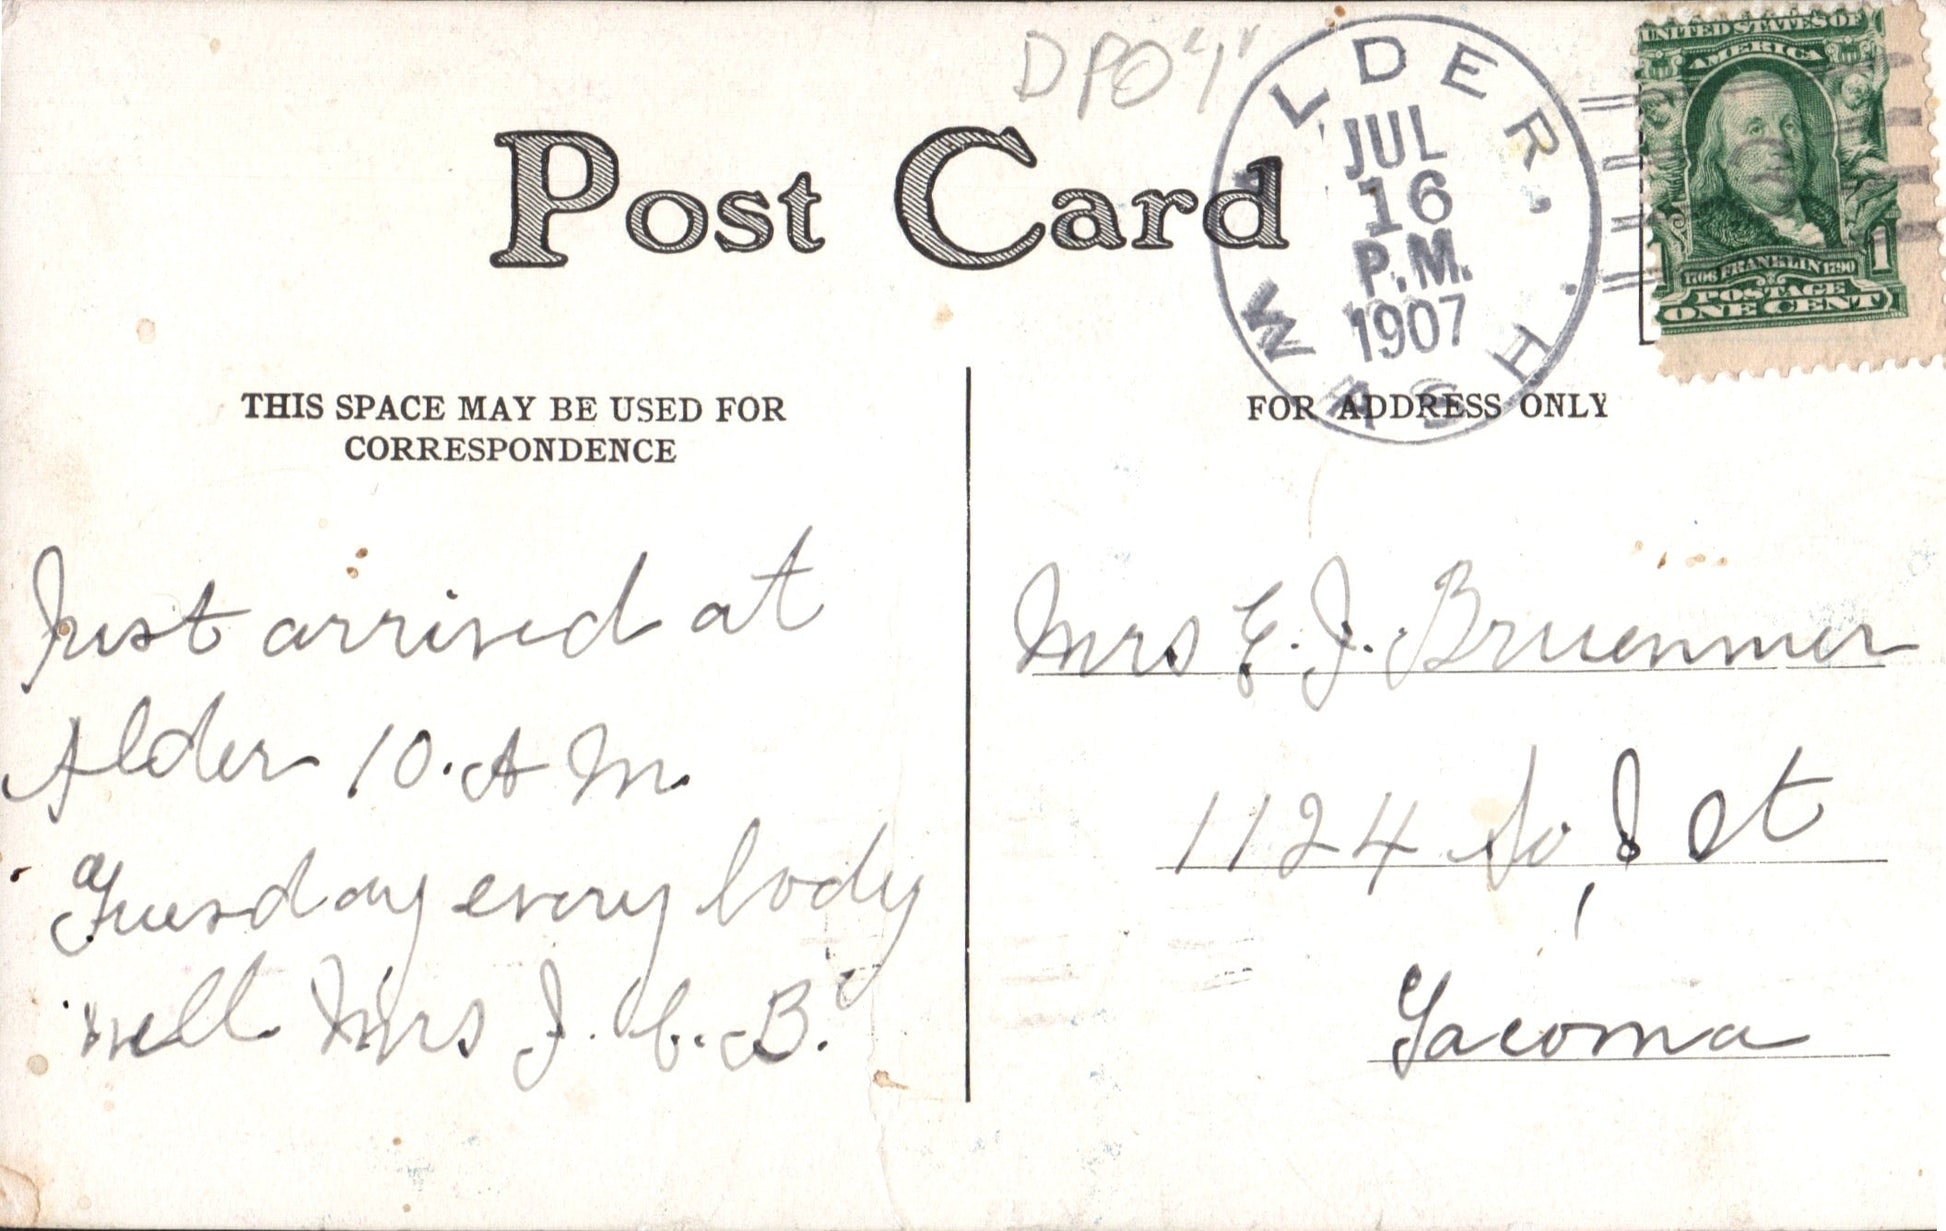 DPO "1"
ALDER.
JUL
16
P.M.
1907
WASH.
UNITED STATES OF
AMERICA
1706 FRANKLIN 1790
POSTAGE
ONE CENT
1
Post Card
THIS SPACE MAY BE USED FOR
CORRESPONDENCE
FOR ADDRESS ONLY
Just arrived at
Alder 10. A M.
Tuesday every body
well Mrs J. C. B.
Mrs E. J. Bruenmer
1124 So J St
Tacoma